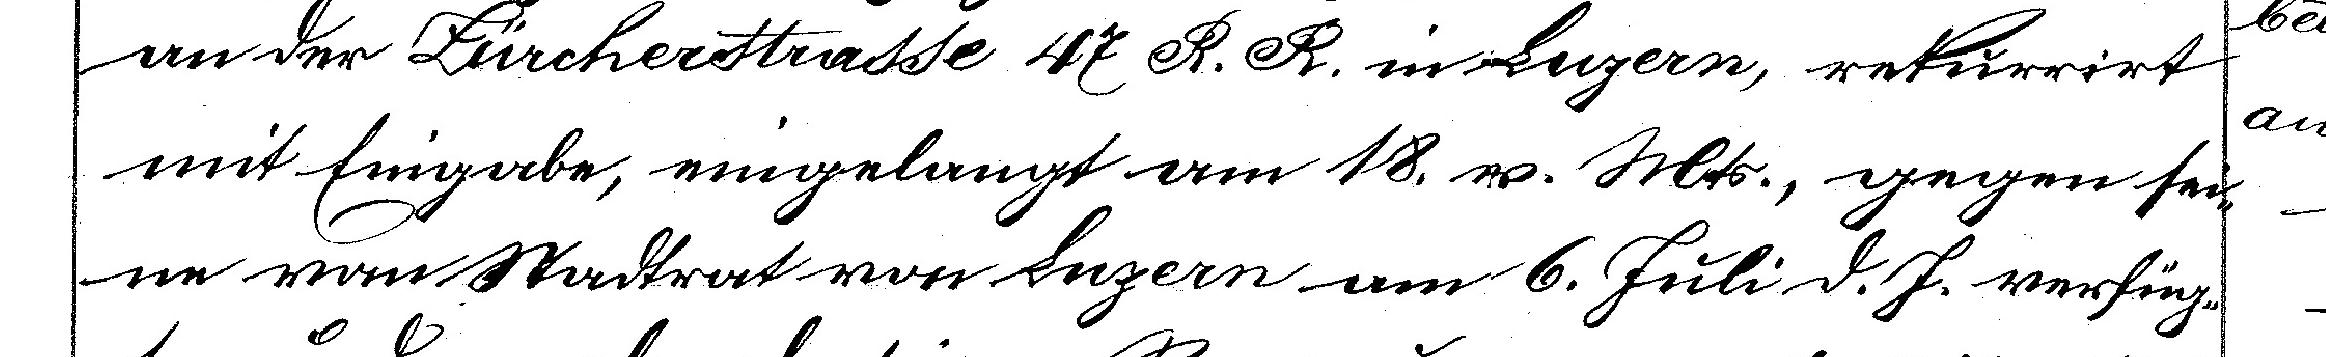 an der Zürcherstrasse 47 R. R. in Luzern, rekurrirt
mit Eingabe, eingelangt am 18. v. Mts., gegen sei-
ne vom Stadtrat von Luzern am 6. Juli d. J. verfüg-